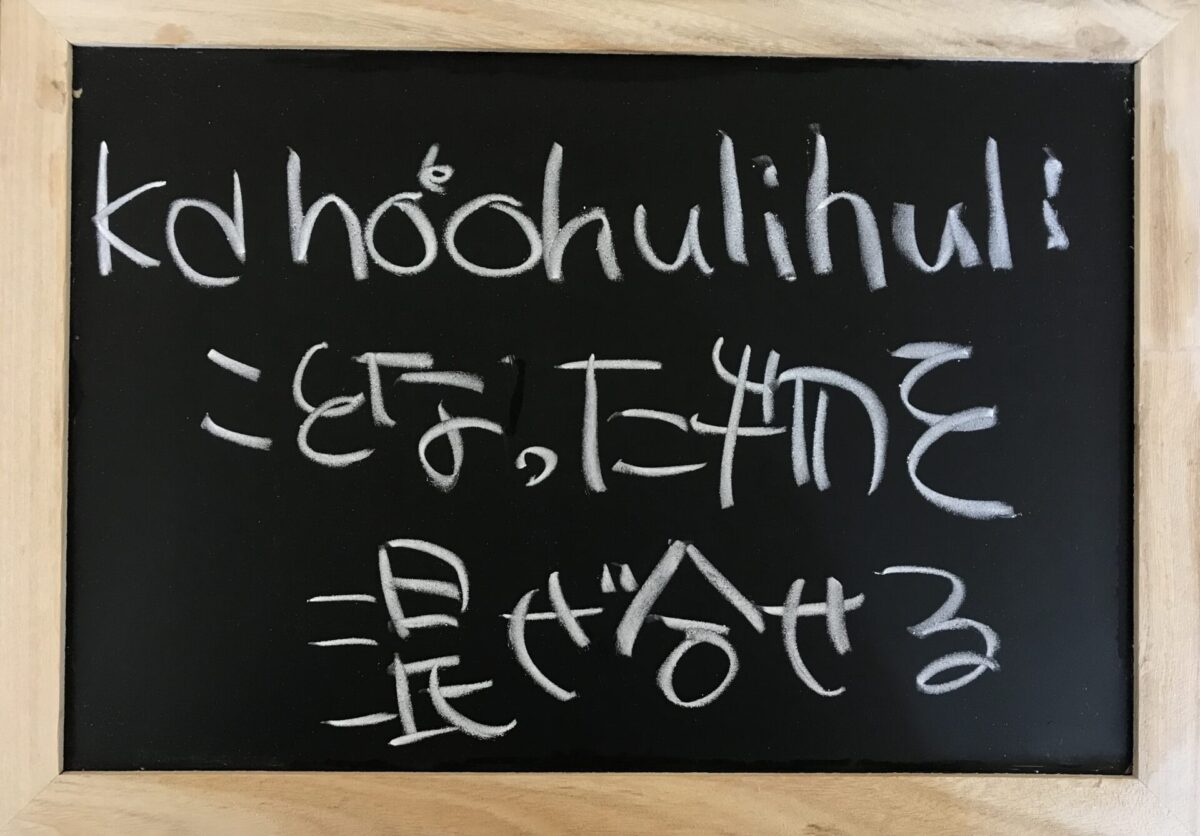 ka hoʻohulihuli
ことなった物を
混ぜ合せる